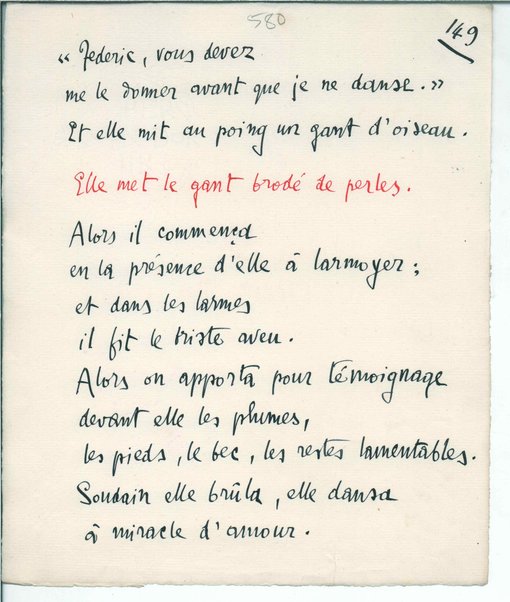 580
149
“ Federic, vous devez
me le donner avant que je ne danse.”
Et elle mit au poing un gant d'oiseau.
Elle met le gant brodé de perles.
Alors il commença
en la présence d'elle à larmoyer ;
et dans les larmes
il fit le triste aveu.
Alors on apporta pour témoignage
devant elle les plumes,
les pieds, le bec, les restes lamentables.
Soudain elle brûla, elle dansa
à miracle d'amour.